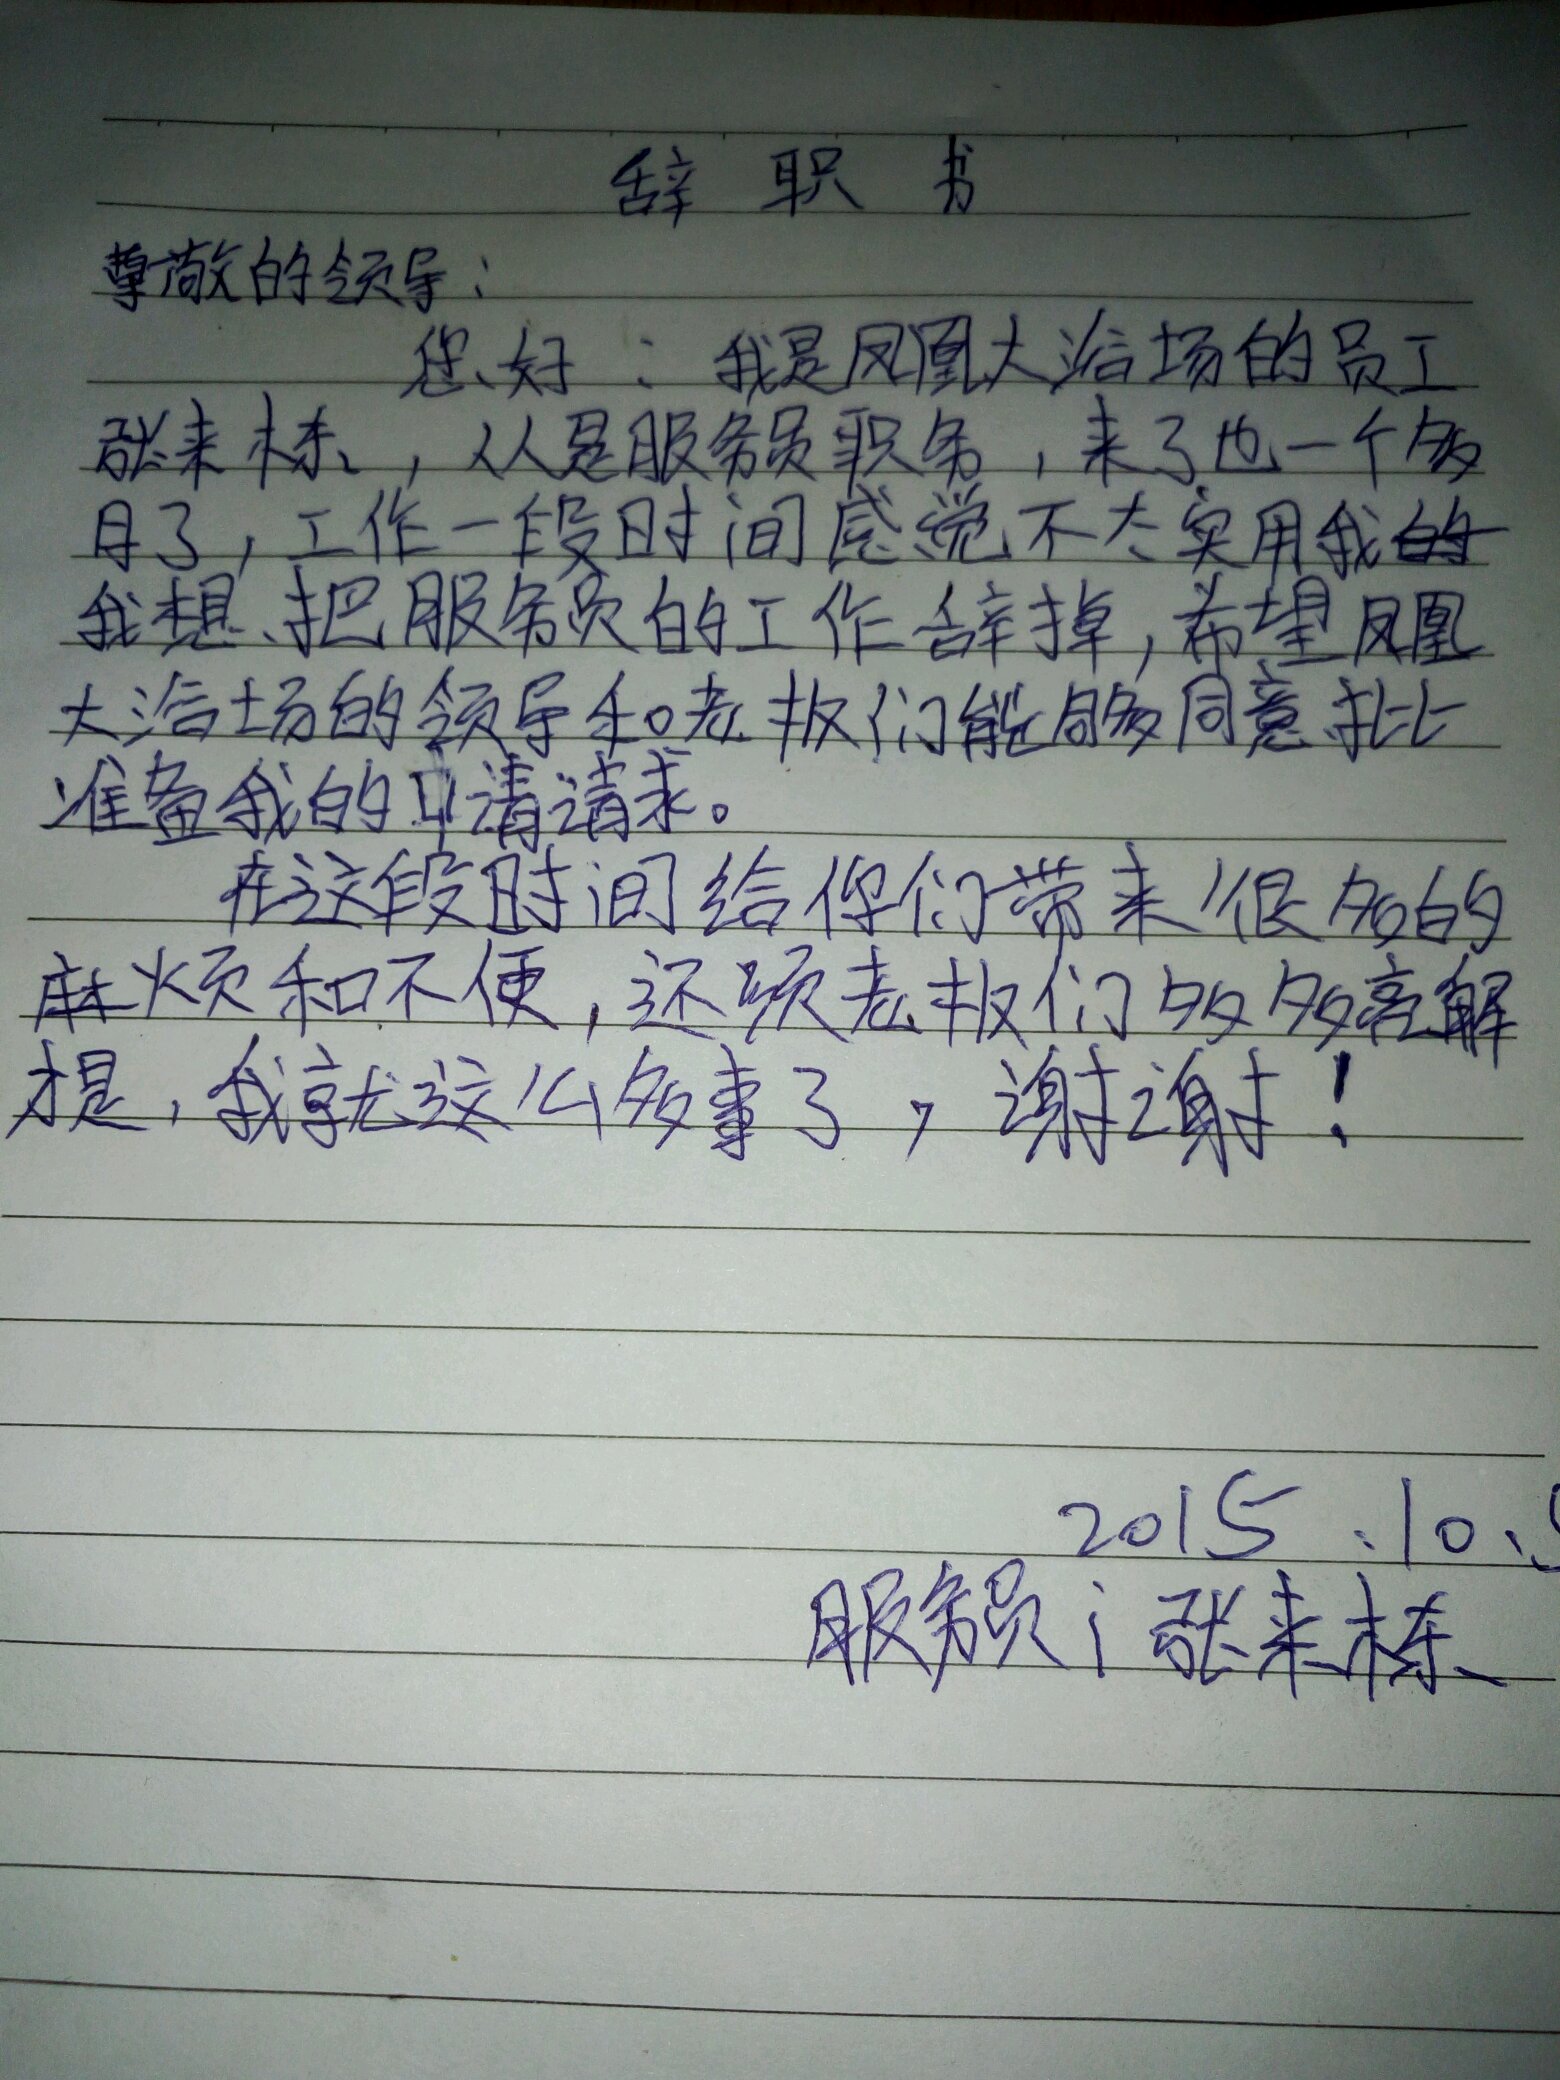 辞职书
尊敬的领导：
您好：我是凤凰大浴场的员工
张来栋，从是服务员职务，来了也一个多
月了，工作一段时间感觉不太实用我的
我想、把服务员的工作辞掉，希望凤凰
大浴场的领导和老板们能够同意批
准备我的申请请求。
在这段时间给你们带来很多的
麻烦和不便，还烦老板们多多亮解
才是，我就这么多事了，谢谢！
2015.10.
服务员：张来栋